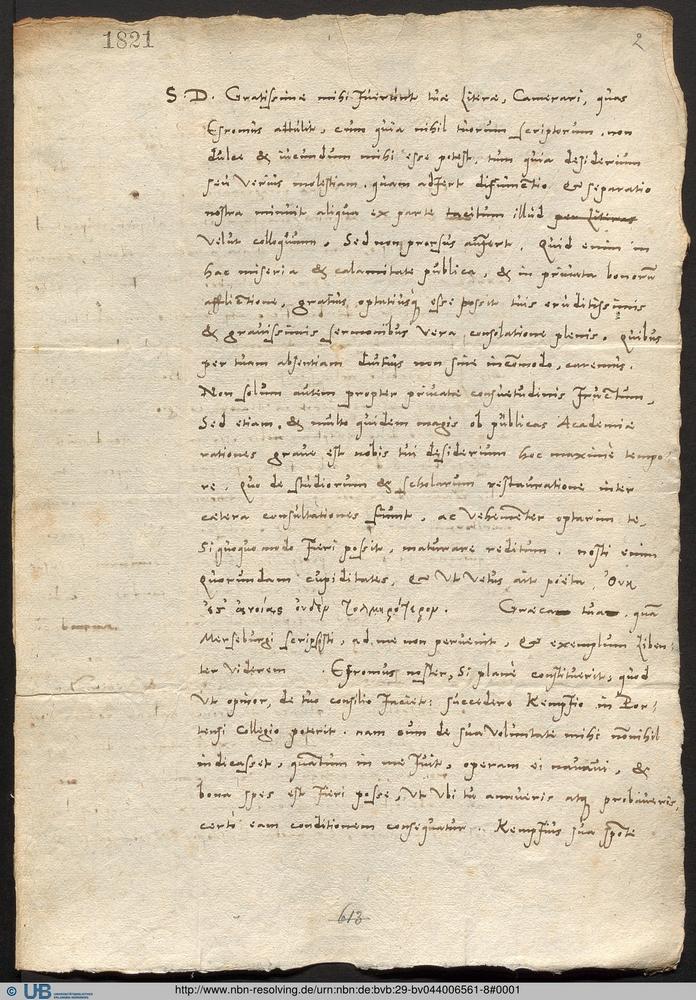 1821
2
S. D. Gratissimae mihi fuerunt tuae literae, Camerari, quas
Esromus attulit, cum quia nihil tuorum scriptorum, non
dulce & iucundum mihi esse potest, tum quia desiderium
seu verius molestiam, quam adfert disiunctio & separatio
nostra minuit aliqua ex parte tacitum illud per literas
velut colloquium, Sed non prorsus aufert. Quid enim in
hac miseria & calamitate publica, & in priuata bonorū
afflictione, gratius optatiusq esse possit tuis eruditissimis
& grauissimis sermonibus vera consolatione plenis. Quibus
per tuam absentiam diutius non sine incōmodo, caremus.
Non solum autem propter priuatae consuetudinis fructum,
Sed etiam, & multo quidem magis ob publicas Academiae
rationes graue est nobis tui desiderium hoc maximè tempo-
re, quo de studiorum & scholarum restauratione inter
caetera consultationes fiunt, ac vehementer optarim te,
Si quoquo modo fieri possit, maturare reditum. nosti enim
quorundam cupiditates, & vt vetus ait poëta, Οὐκ
ἔς' ἀνοίας οὐδὲν τολμηρότερον. Graeca tua, quā
Merseburgi scripsisti, ad me non peruenit, & exemplum liben-
ter viderem. Esromus noster, Si planè constituerit, quod
vt opinor, de tuo consilio faciet: succedere Kempfio in Por-
tensi Collegio poterit. nam cum de sua voluntate mihi nōnihil
indicasset, quantum in me fuit, operam ei nauaui, &
bona spes est fieri posse, vt vbi tu annueris atq probaueris,
certò eam conditionem consequatur. Kempfius sua spōte
613
UB
UNIVERSITÄTSBIBLIOTHEK
ERLANGEN-NÜRNBERG
http://www.nbn-resolving.de/urn:nbn:de:bvb:29-bv044006561-8#0001